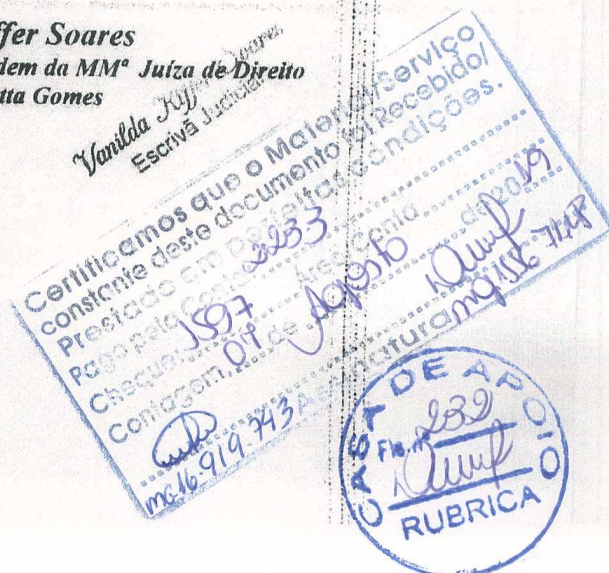 ffer Soares
dem da MMª Juíza de Direito
tta Gomes
Vanilda Kffer Soares
Escrivã Judicial
Certificamos que o Material/Serviço
constante deste documento foi Recebido/
Prestado em perfeitas condições.
Pago pela Conta 2233
Cheque 1597 Area Conta
Contagem, 07 de Agosto de 2019
Assinatura
mg.16.919.743
CASA DE APOIO
Fls. nº 232
RUBRICA